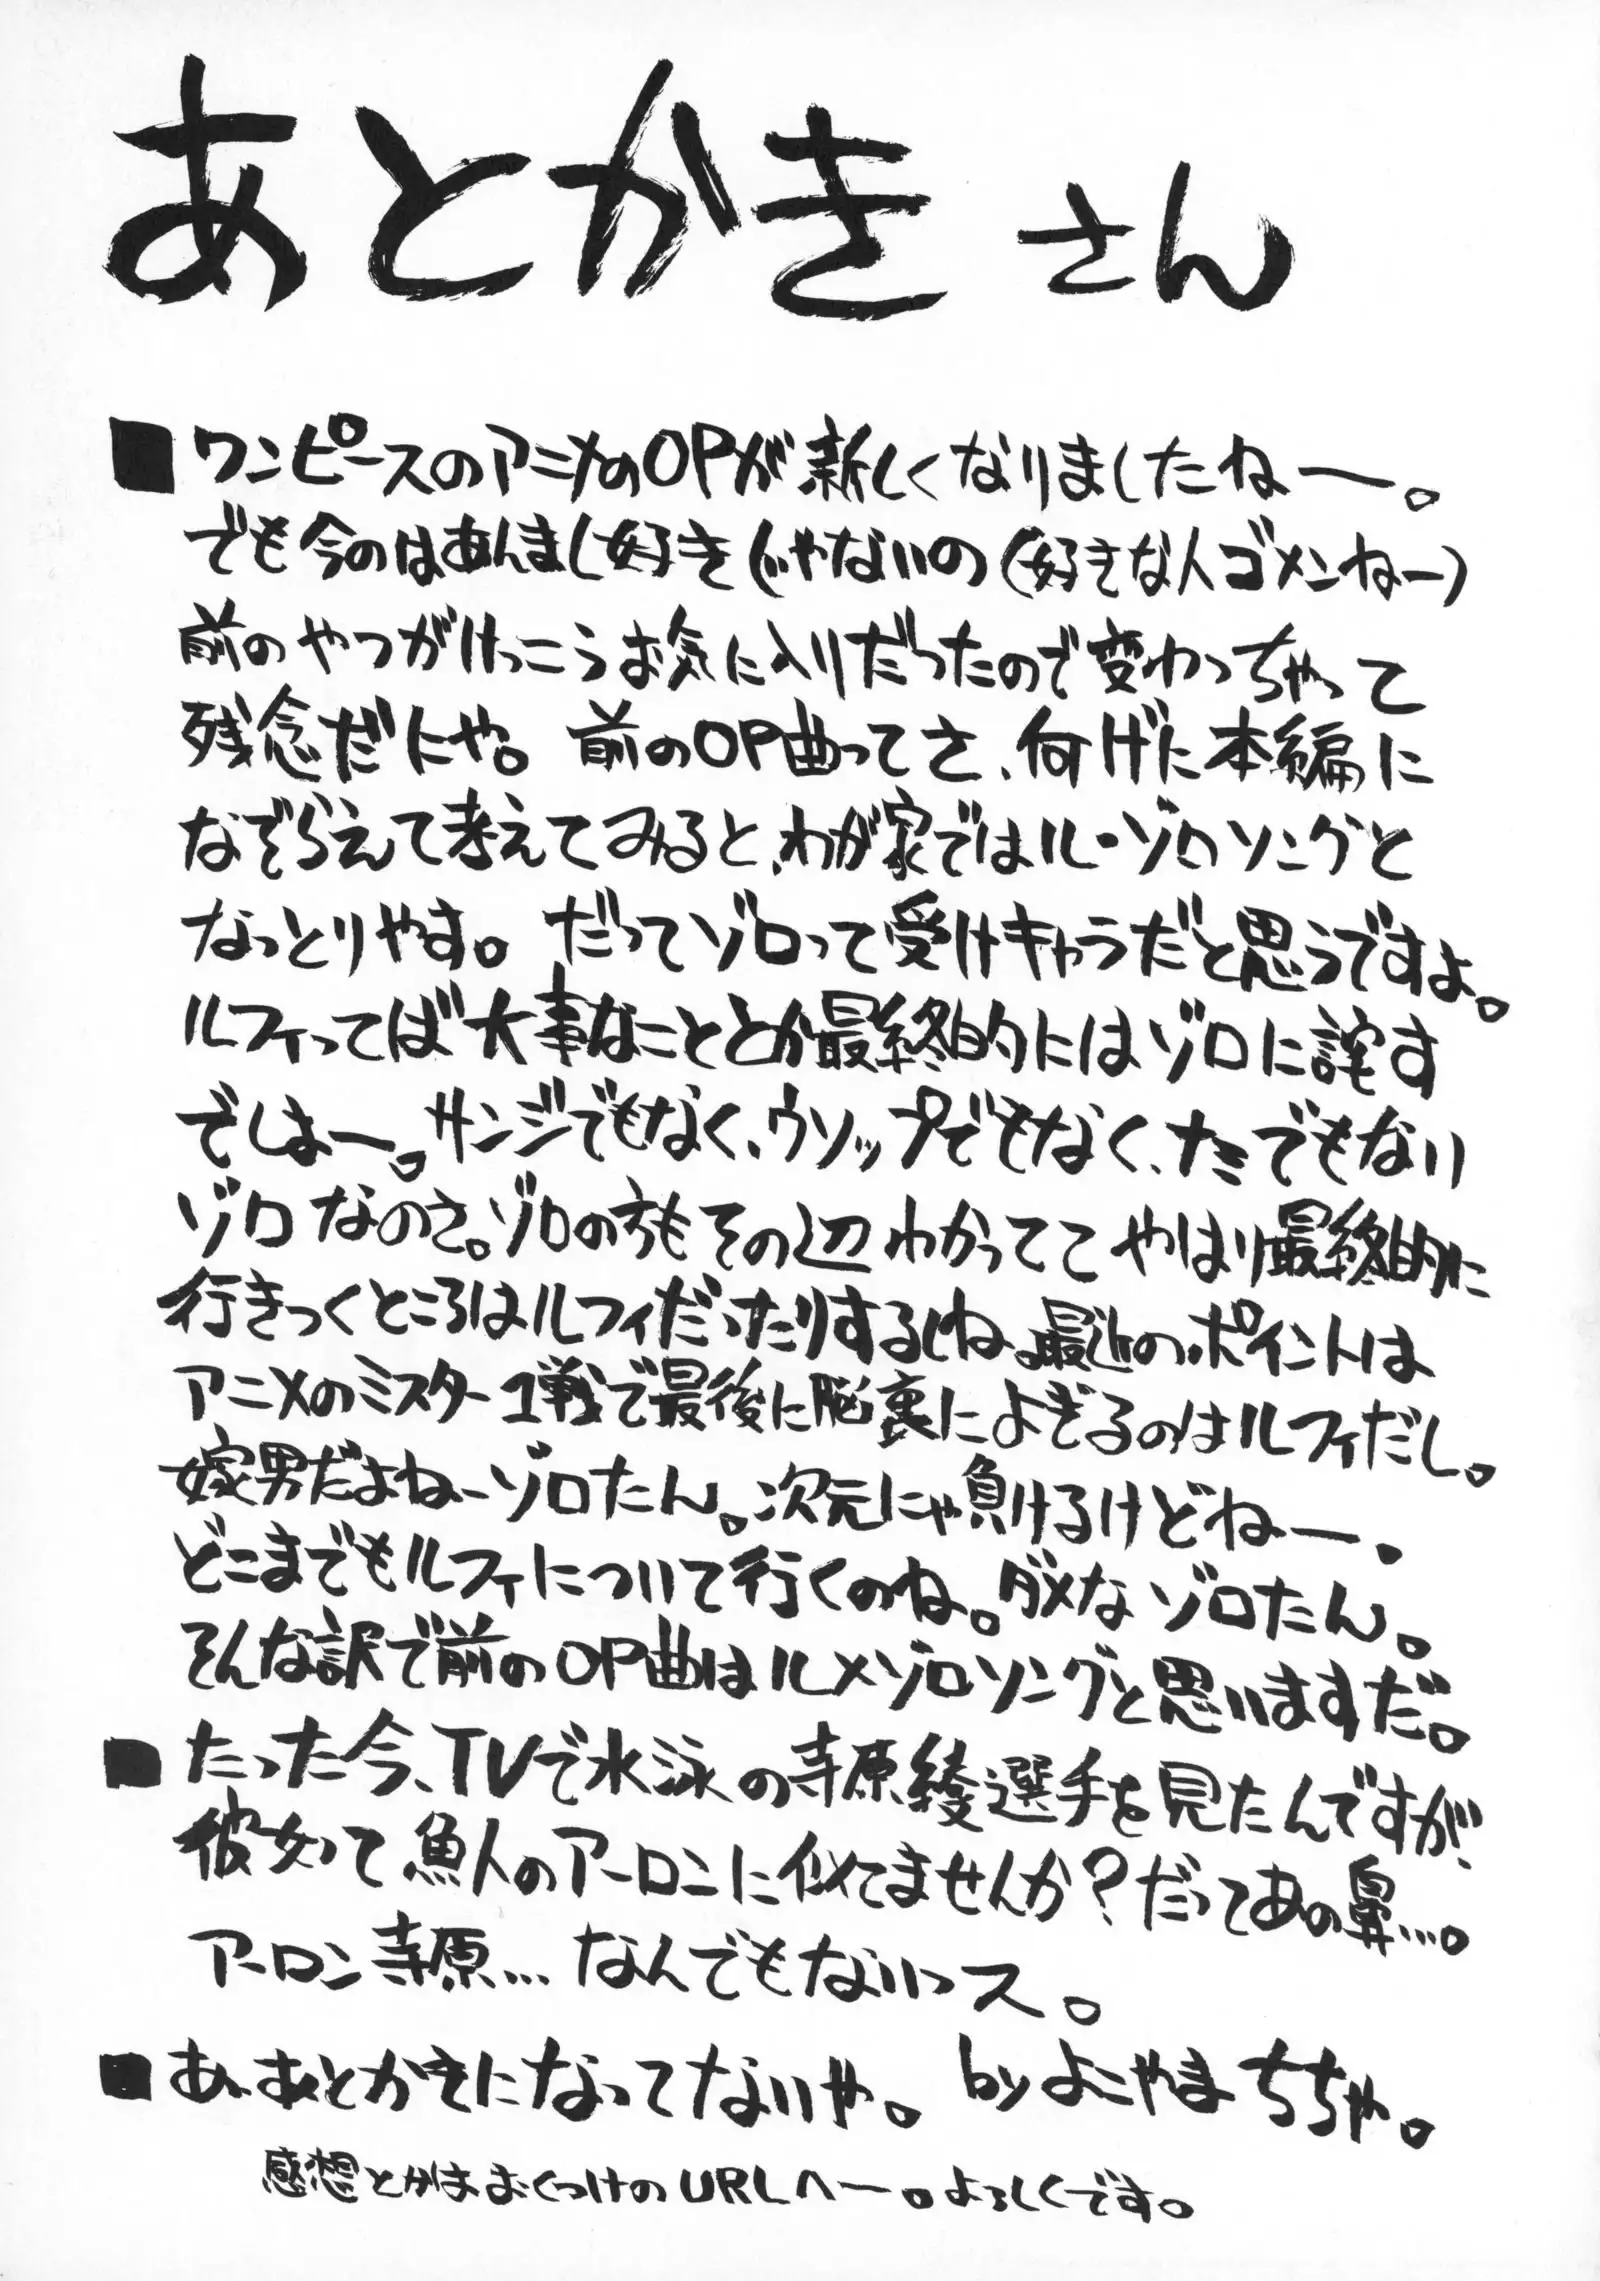 あとかきさん
■ワンピースのアニメのOPが新しくなりましたねー。
でも今のはあんまし好きじゃないの(好きな人ゴメンねー)
前のやつがけっこうお気に入りだったので変わっちゃって
残念だにゃ。前のOP曲ってさ、何げに本編に
なぞらえて考えてみると、わが家ではル・ゾロソングと
なっとりやす。だってゾロって受けキャラだと思うですよ。
ルフィってば大事なこととか最終的にはゾロに託す
でしょー。サンジでもなく、ウソップでもなく、ナミでもない
ゾロなのさ。ゾロの方もその辺わかってて やはり最終的に
行きつくところはルフィだったりするしね。最近のポイントは
アニメのミスター1戦で最後に脳裏によぎるのはルフィだし。
嫁男だよねーゾロたん。次元にゃ負けるけどねー、
どこまでもルフィについて行くのね。ダメなゾロたん。
そんな訳で前のOP曲はルメゾロソングと思いますだ。
■たった今、TVで水泳の寺原綾選手を見たんですが、
彼女って魚人のアーロンに似てませんか?だってあの鼻…。
アーロン寺原… なんでもないっス。
■あ、あとかきになってないや。 by よこやまちちゃ。
感想とかはおくつけのURLへー。よろしくです。